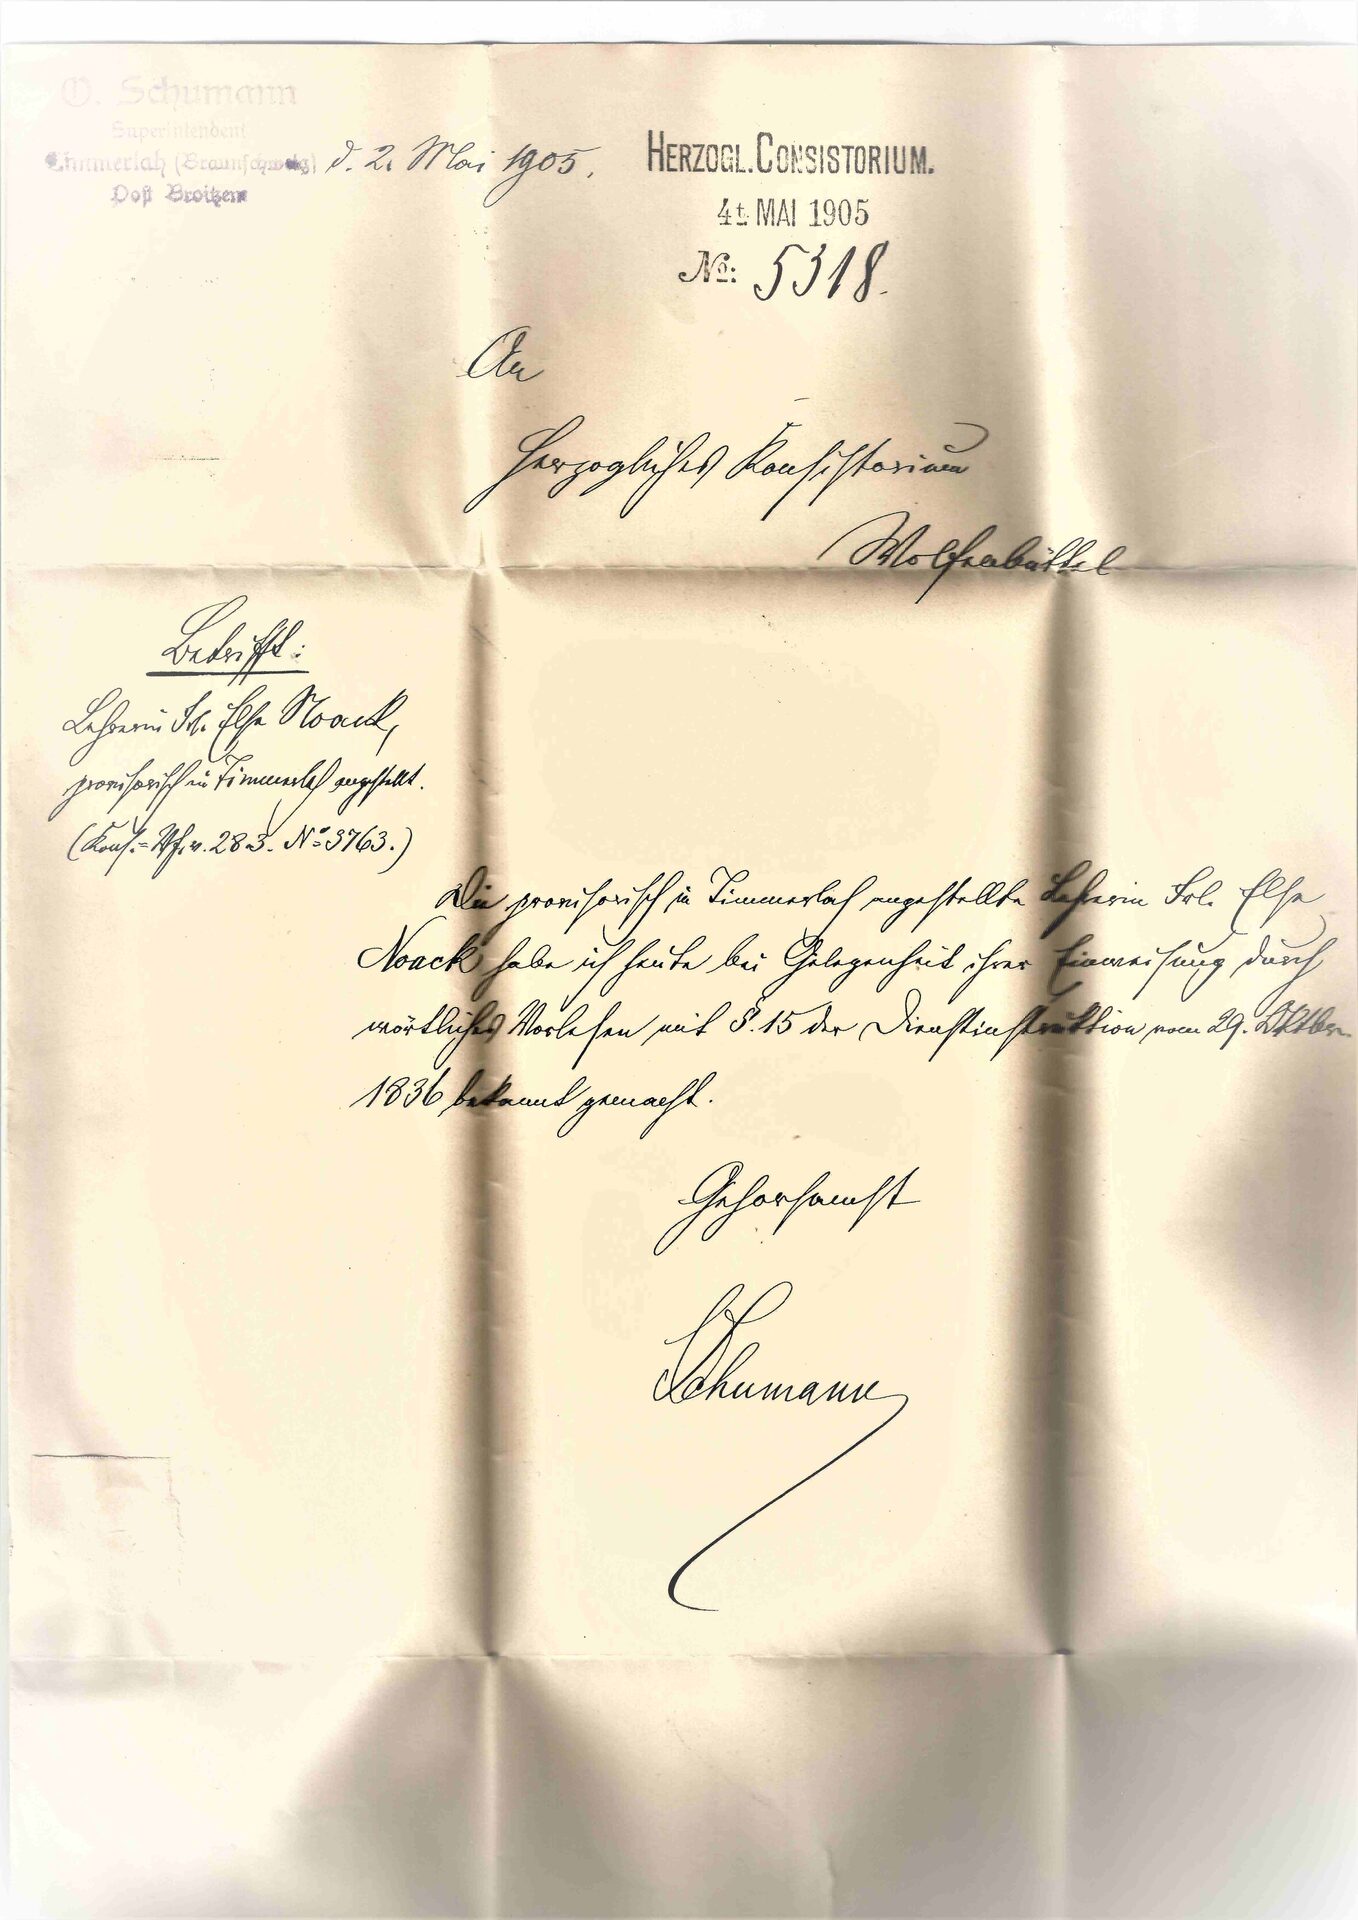 O. Schumann
Superintendent
Timmerlah (Braunschweig)
Post Broitzem
d. 2. Mai 1905.
HERZOGL. CONSISTORIUM.
4t MAI 1905
No: 5318.
An
Herzogliches Konsistorium
Wolfenbüttel
Betrifft:
Lehrerin Frl. Else Noack,
provisorisch in Timmerlah angestellt.
(Kons.-Vf. v. 28.3. No 3763.)
Die provisorisch in Timmerlah angestellte Lehrerin Frl. Else
Noack habe ich heute bei Gelegenheit ihrer Einweisung durch
wörtliches Vorlesen mit §. 15 der Dienstinstruktion vom 29. Oktber
1836 bekannt gemacht.
Gehorsamst
Schumann